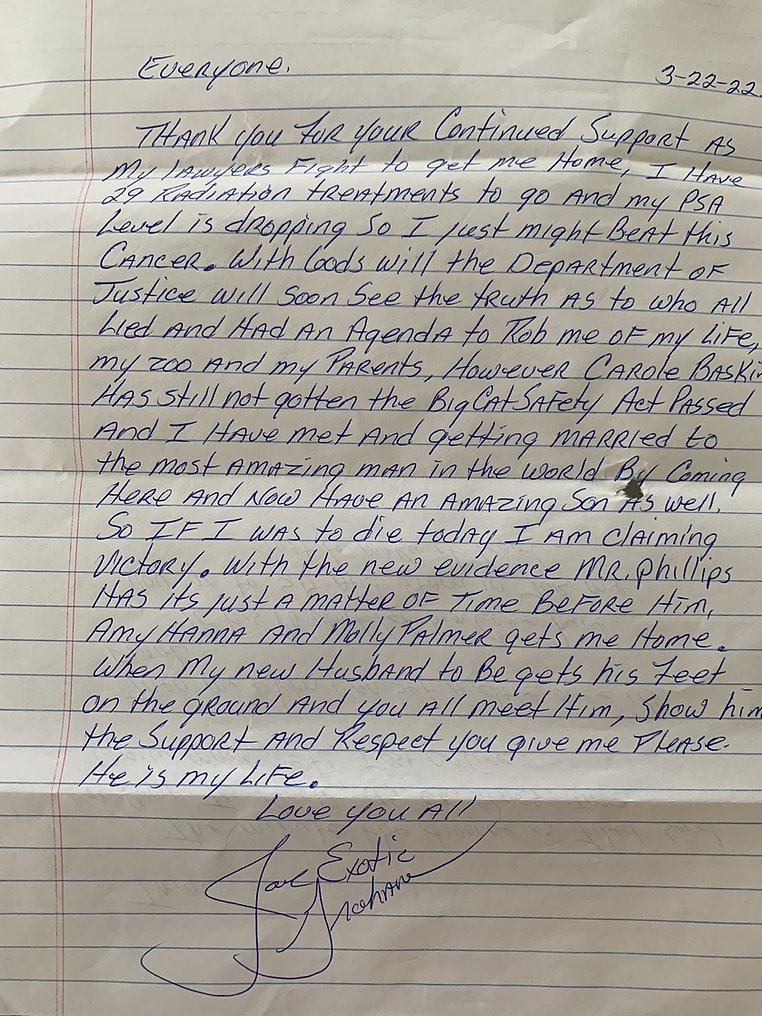 Everyone.
3-22-22.
THANK you FOR your Continued Support AS
My LAWYERS Fight to get me Home, I HAVE
29 RADIATION treatments to go AND my PSA
Level is dropping So I just might BEAT this
CANCER. With Goods will the DEPARTMENT OF
Justice will Soon See the truth AS to who All
Lied AND HAD AN AgendA to Rob me OF my LIFE,
my zoo AND my PARENTS, However CAROLE BASKIN
HAS still not gotten the Big CAT SAFETY Act PASSED
AND I HAVE met AND getting MARRIED to
the most AMAZING man in the world By Coming
Here AND Now HAVE AN AMAZING Son AS well.
So IF I WAS to die today I AM claiming
Victory. With the new evidence MR. Phillips
HAS its just A MATTER OF Time BeFore Him,
Amy HANNA AND Molly PALMER gets me Home.
When My new HUSBAND to Be gets his Feet
on the ground AND you All meet Him, Show him
the Support AND Respect you give me Please.
He is my LIFE.
Love you All
Joe Exotic